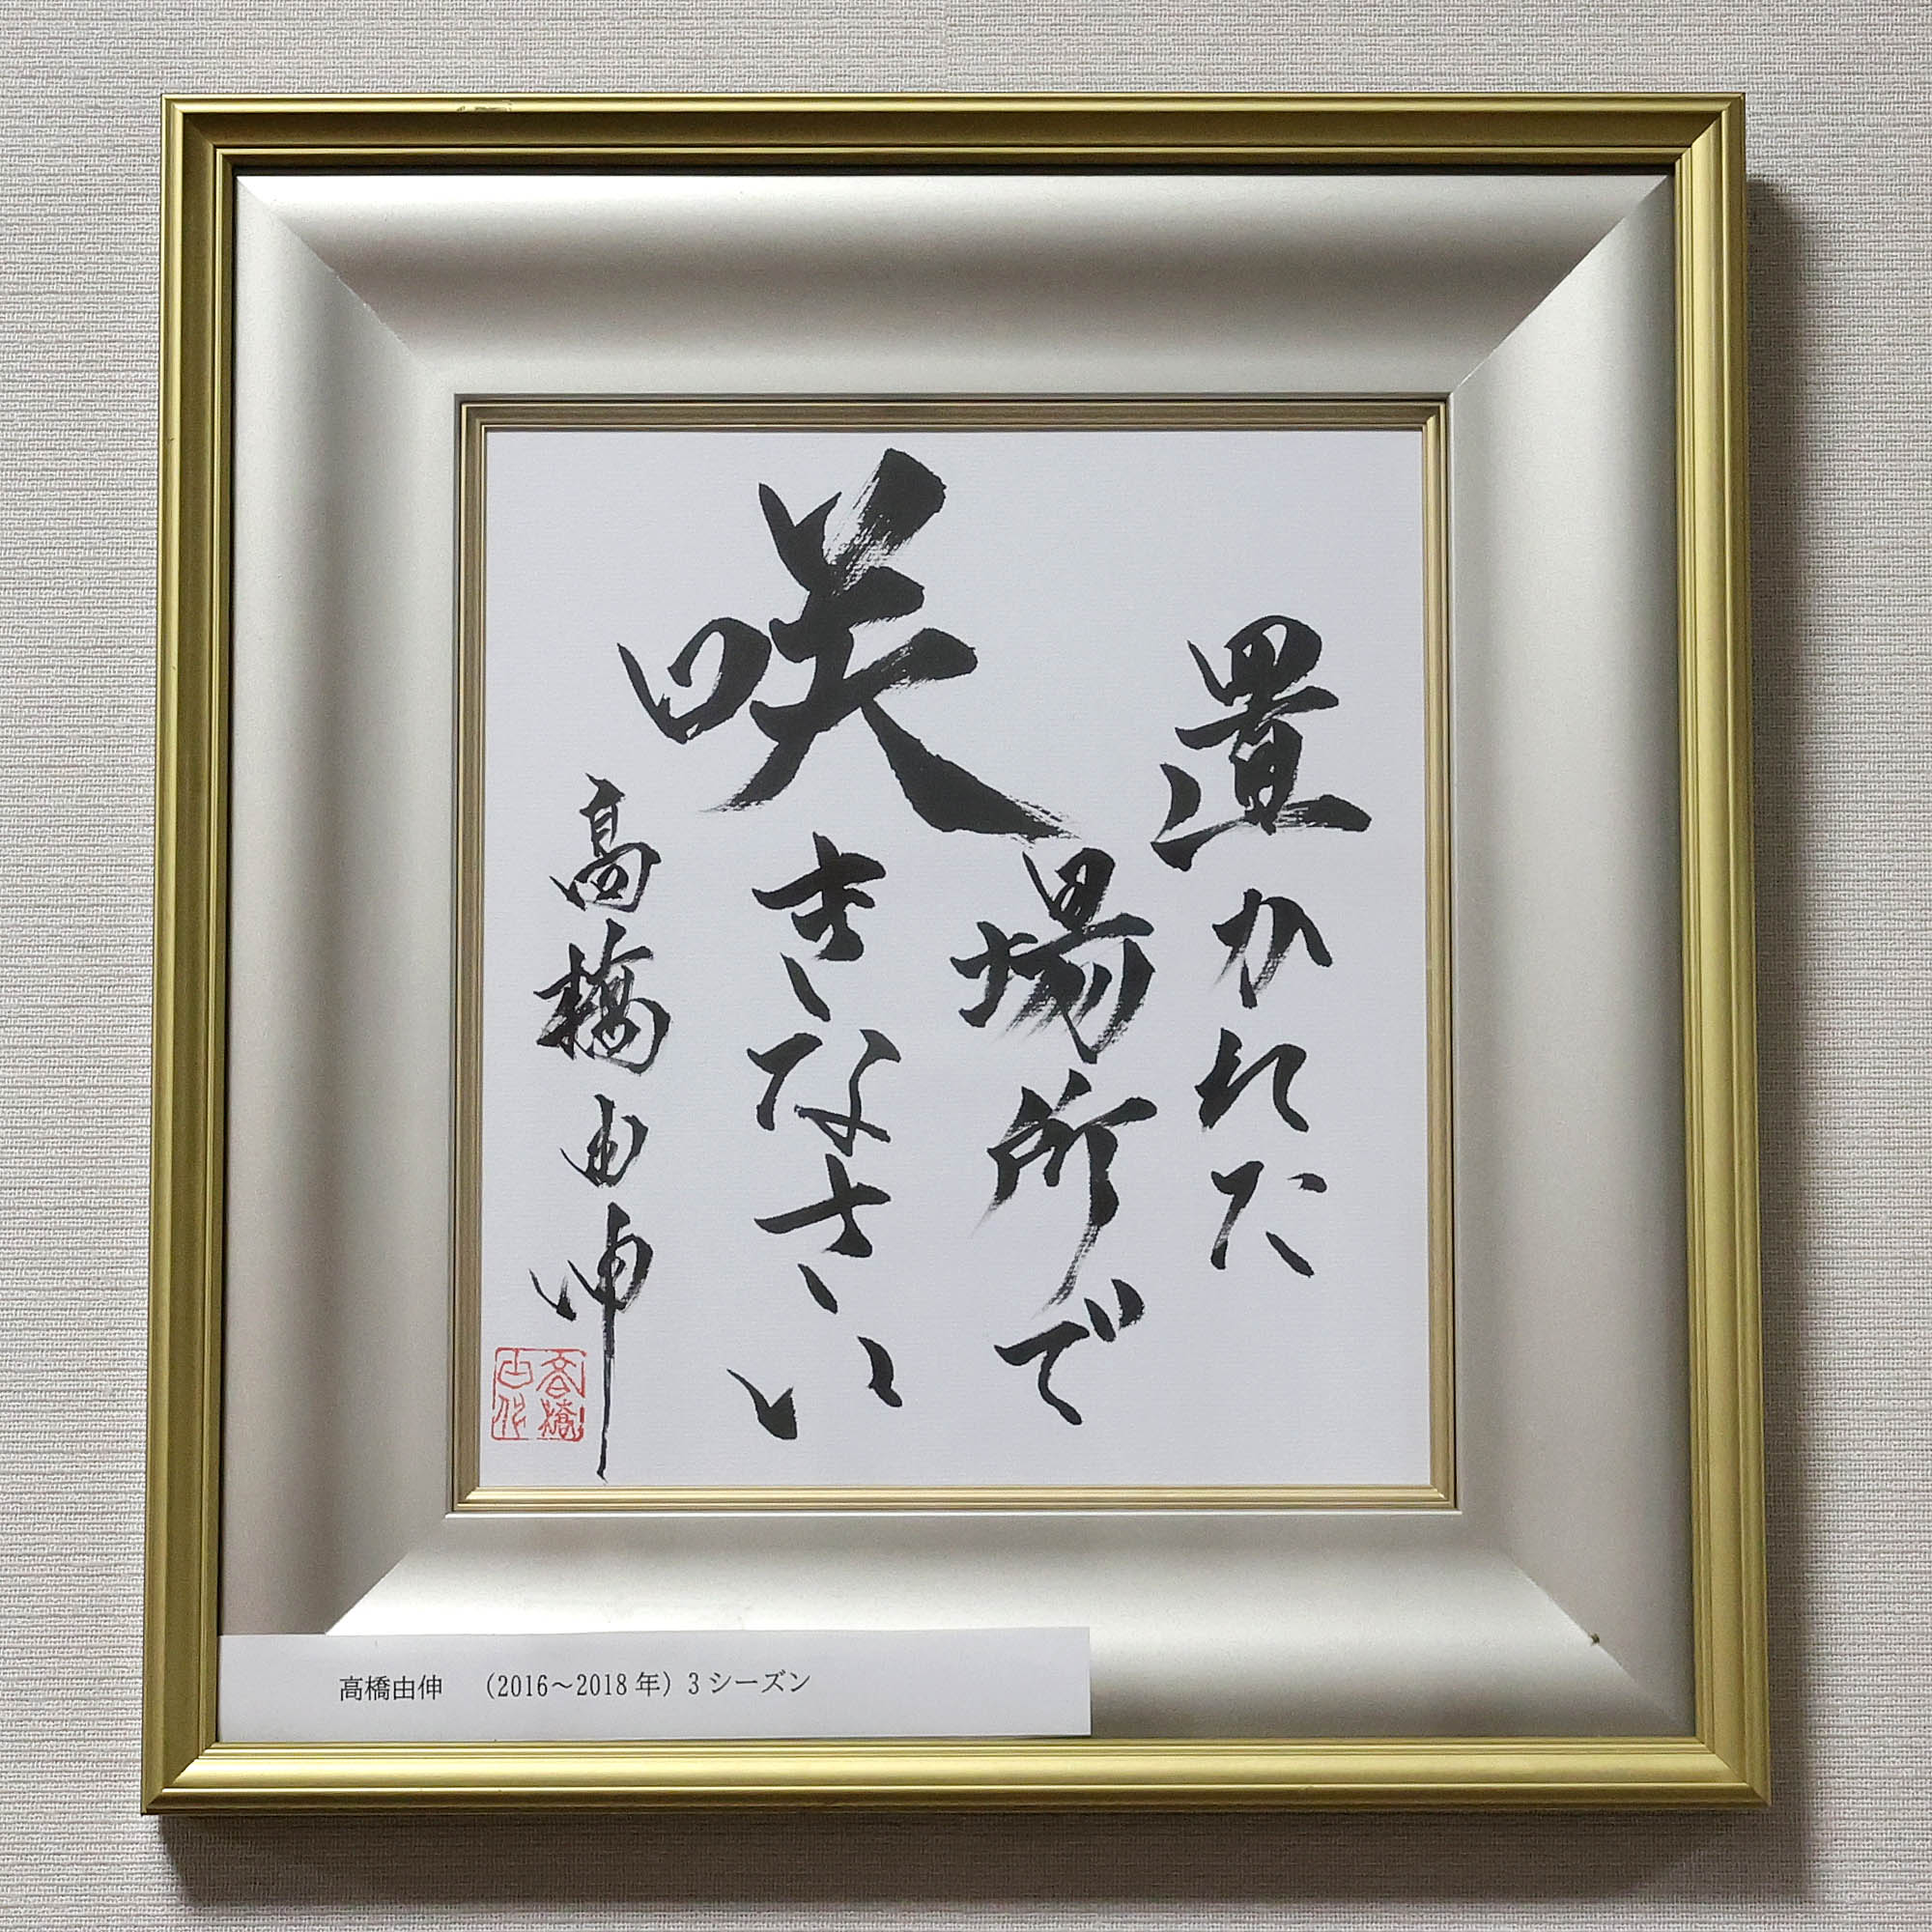 置かれた
場所で
咲きなさい
高橋由伸
高橋由伸 （2016～2018年）3シーズン